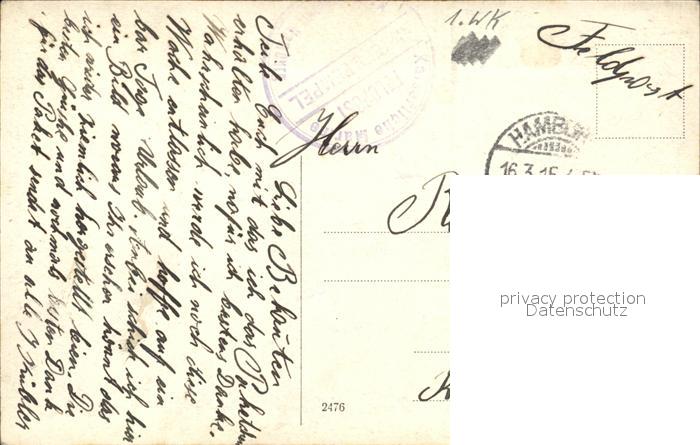 1. WK
Feldpost
HAMBUR
16.3.15.4-5
Herrn
privacy protection
Datenschutz
2476
Liebe Bekannten
Teile Euch mit das ich das Paket
erhalten habe, wofür ich bestens Danke.
Wahrscheinlich werde ich noch diese
Woche entlassen und hoffe auf ein
bar Tage Urlaub. Anbei schick ich hier
ein Bild woraus Ihr ersehen könnt das
ich wieder ziemlich hergestellt bin. Die
besten Grüße und nochmals besten Dank
für das Paket sendet an alle